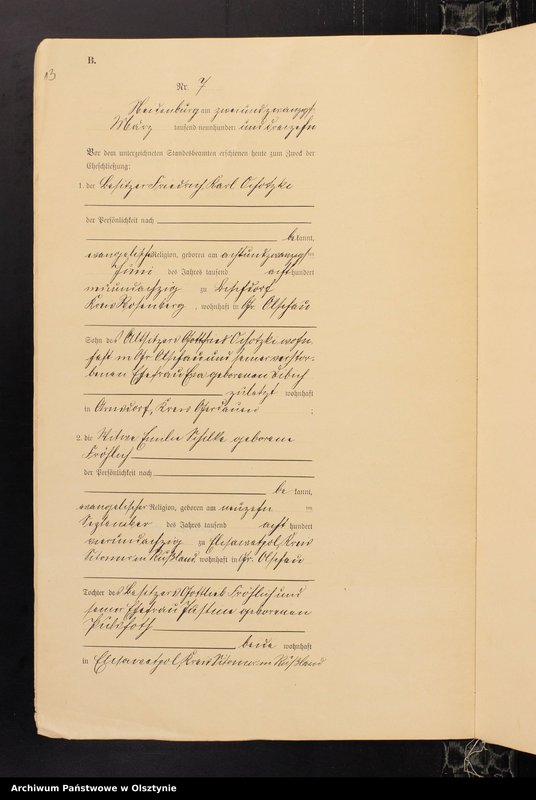 13
B.
Nr. 7
Neidenburg am zweiundzwanzigsten
März tausend neunhundert und dreizehn
Vor dem unterzeichneten Standesbeamten erschienen heute zum Zweck der
Eheschließung:
1. der Besitzer Friedrich Karl
der Persönlichkeit nach
be kannt,
evangelischer Religion, geboren am achtundzwanzigsten
Juni des Jahres tausend acht hundert
neunundachtzig zu
Kreis Rosenberg, wohnhaft in Gr. Olschau
Sohn des Altsitzers Gottfried wohn-
haft in Gr. Olschau und seiner verstor-
benen Ehefrau Eva geborenen
zuletzt wohnhaft
in Arnsdorf, Kreis Gerdauen ;
2. die Witwe Emilie Schilke geborene
Fröhlich
der Persönlichkeit nach
be kannt,
evangelischer Religion, geboren am neunzehn ten
September des Jahres tausend acht hundert
vierundachtzig zu Elisawetpol Kreis
Sitomir in Rußland, wohnhaft in Gr. Olschau
Tochter des Besitzers Gottlieb Fröhlich und
seiner Ehefrau geborenen
beide wohnhaft
in Elisawetpol Kreis Sitomir in Rußland
Archiwum Państwowe w Olsztynie